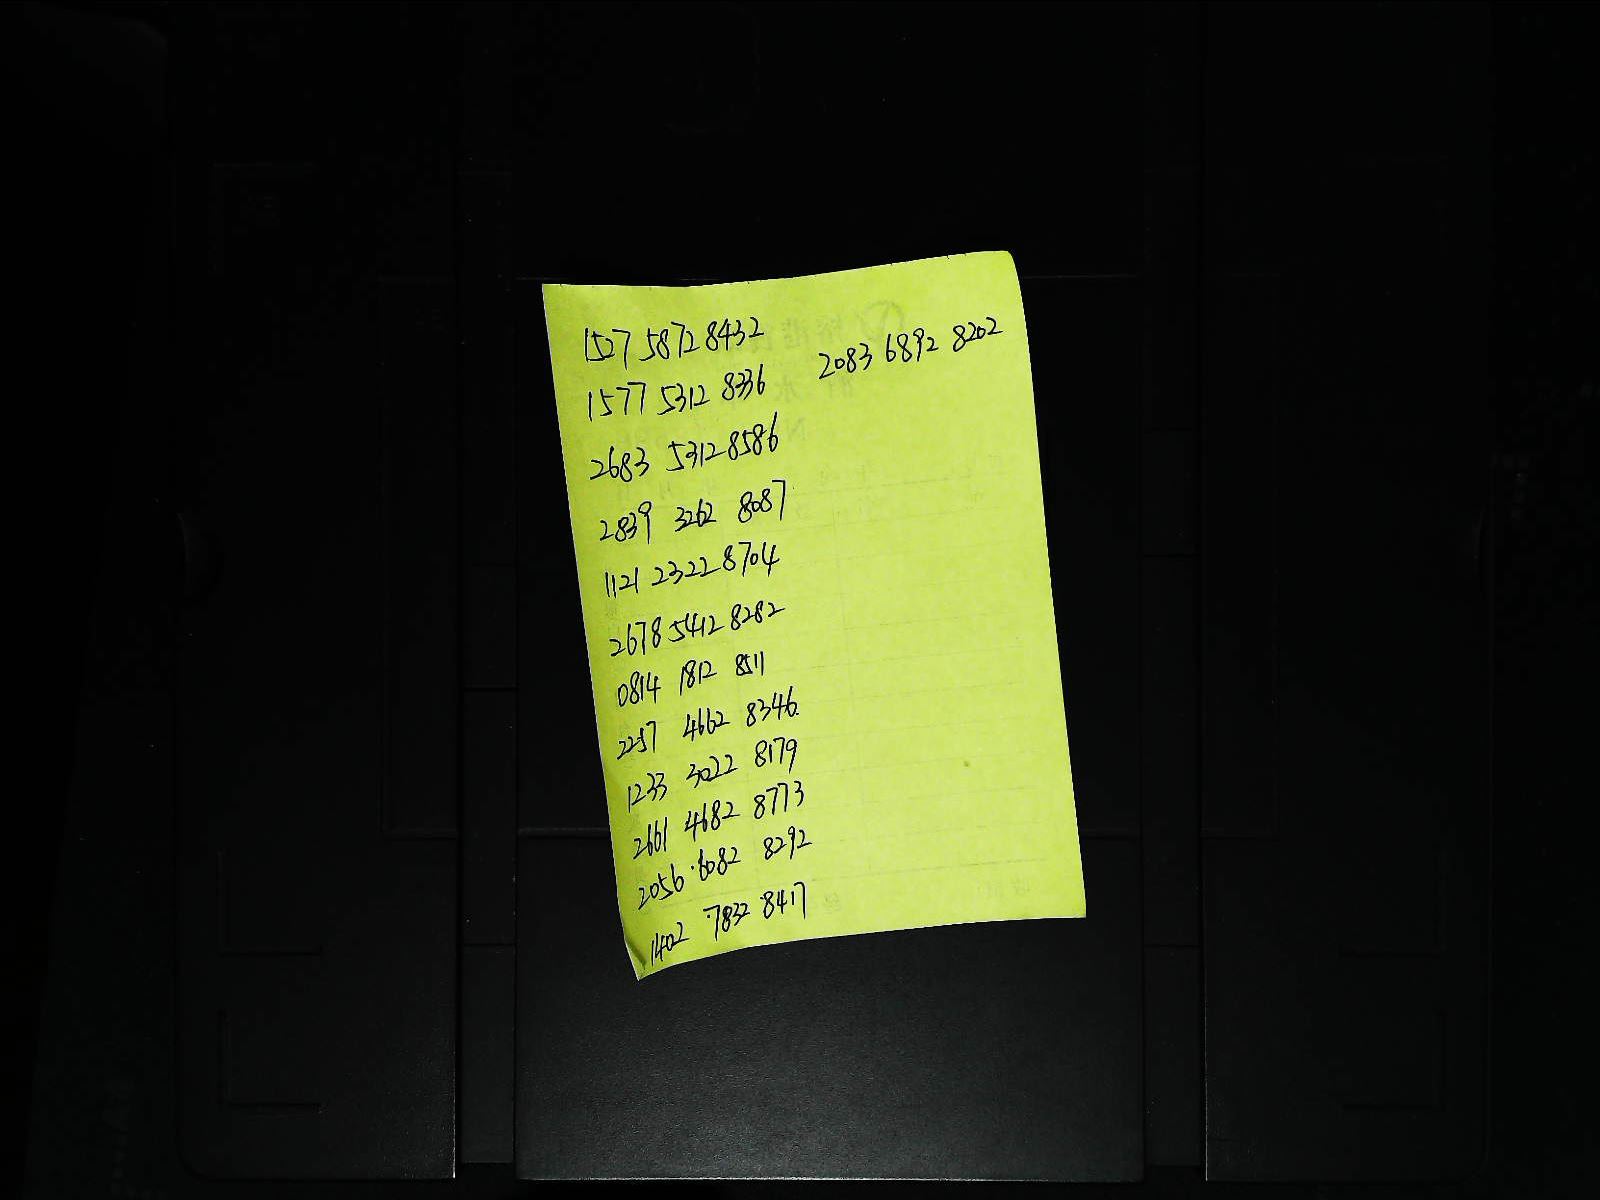 1527 5872 8432
2083 6892 8202
1577 5312 8336
2683 5312 8586
2839 3262 8087
1121 2322 8704
2678 5412 8282
0814 1812 8511
2257 4662 8346
1233 3022 8179
2661 4682 8773
2056 6082 8292
1402 7832 8417